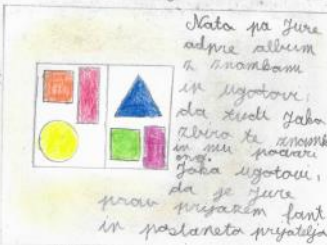 Nato pa Jure
odpre album
z znamkami
in ugotovi,
da tudi Jaka
zbira te znamke
in mu podari
eno.
Jaka ugotovi,
da je Jure
prav prijazen fant
in postaneta prijatelja